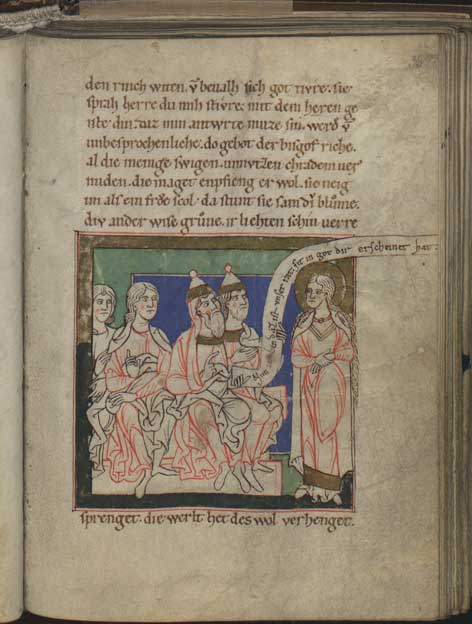 den ruich witen. v̄ beualh sich got tivre. sie
sprah herre du mih stivre. mit dem heren ge
iste din. daz min antwrte nutze sin. werdē v̄
unbesprochenliche. do gebot der bisgof riche.
al die menige swigen. unnutzen chradem uer
miden. die maget enpfieng er wol. sie neig
im als ein frōe scol. da stunt sie sam dv̓ blůme.
div ander wise grůne. ir liehten schin uerre
daz ist unser rat. sit in got dir erscheinet hat.
sprenget. die werlt het des wol verhenget.